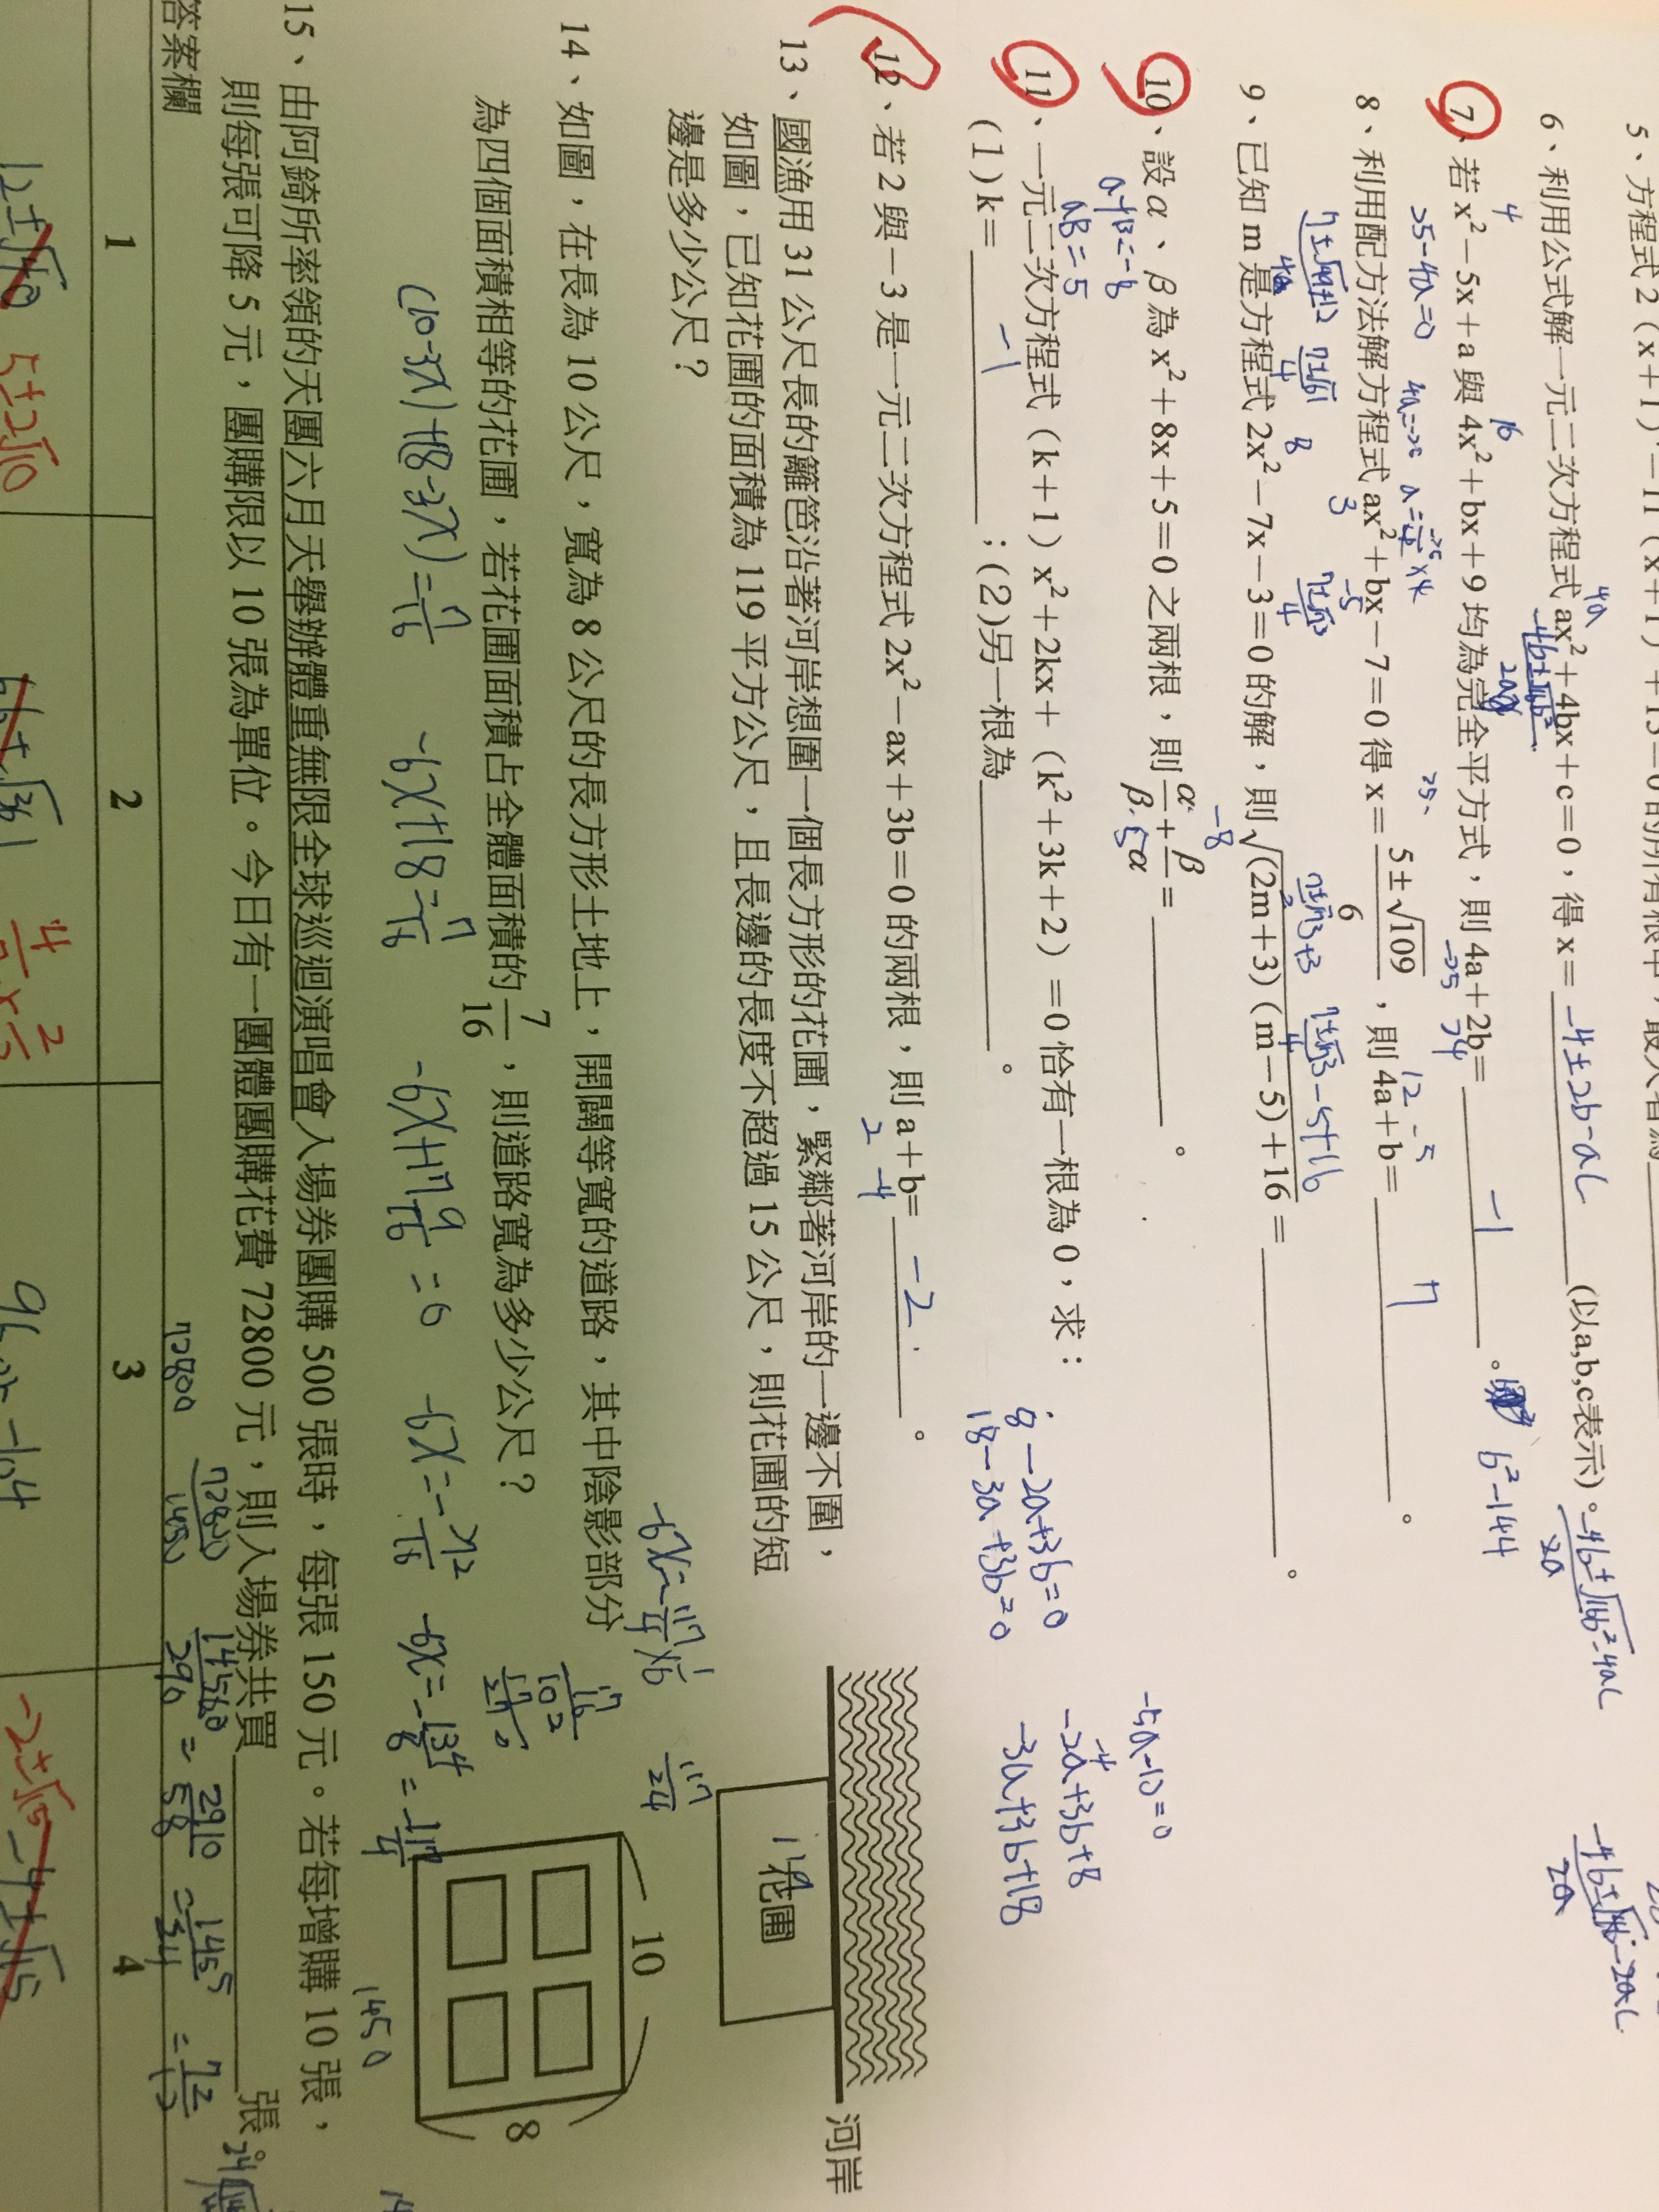 5、方程式 2(x+1)²-11(x+1)+15=0 的所有根中，最大者為
6、利用公式解一元二次方程式 ax²+4bx+c=0，得 x= -4±2b-ac (以a,b,c表示)。
7、若 x²-5x+a 與 4x²+bx+9 均為完全平方式，則 4a+2b= -1 。
b²-144
25-4a=0
8、利用配方法解方程式 ax²+bx-7=0 得 x= 5±√109 / 6，則 4a+b= 7 。
3 -5 12 -5
9、已知 m 是方程式 2x²-7x-3=0 的解，則 √(2m+3)(m-5)+16 = 。
10、設 α、β 為 x²+8x+5=0 之兩根，則 α/β + β/α = 。
α+β=-8
αβ=5
11、一元二次方程式 (k+1)x²+2kx+(k²+3k+2)=0 恰有一根為 0，求：
(1) k= -1 ；(2)另一根為 。
8-2a+3b=0
18-3a+3b=0
-5a-10=0
-2a+3b+8
-3a+3b+18
12、若 2 與 -3 是一元二次方程式 2x²-ax+3b=0 的兩根，則 a+b= -2 。
2 -4
13、國漁用 31 公尺長的籬笆沿著河岸想圍一個長方形的花圃，緊鄰著河岸的一邊不圍，
如圖，已知花圃的面積為 119 平方公尺，且長邊的長度不超過 15 公尺，則花圃的短
邊是多少公尺？
河岸
花圃
119
14、如圖，在長為 10 公尺，寬為 8 公尺的長方形土地上，開闢等寬的道路，其中陰影部分
為四個面積相等的花圃，若花圃面積占全體面積的 7/16，則道路寬為多少公尺？
10
8
(10-3x)+(8-3x)=7/16
-6x+18=7/16
-6x+17 9/16=0
15、由阿錡所率領的天團六月天舉辦體重無限全球巡迴演唱會入場券團購 500 張時，每張 150 元。若每增購 10 張，
則每張可降 5 元，團購限以 10 張為單位。今日有一團體團購花費 72800 元，則入場券共買 張。
72800
1450
答案欄
1 2 3 4
5±2√10